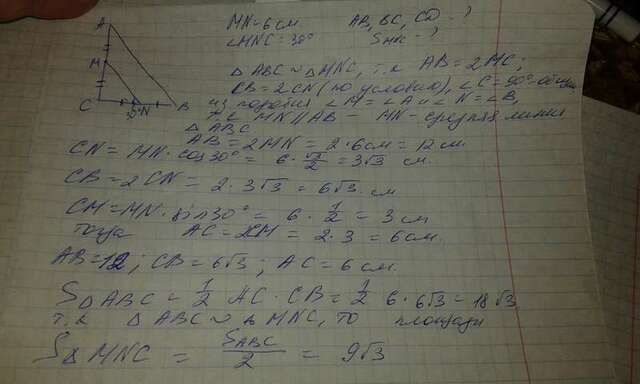 A
M
C
30° N
B
MN = 6 см AB, BC, CA - ?
∠MNC = 30° S MNC - ?
△ ABC ∾ △ MNC, т.к AB = 2MC;
CB = 2CN (по условию), ∠C = 90° - общий
из подобия ∠M = ∠A и ∠N = ∠B,
MN || AB - MN - средняя линия
△ ABC
AB = 2MN = 2·6см = 12 см.
CN = MN · cos30° = 6 · √3/2 = 3√3 см
CB = 2CN = 2·3√3 = 6√3 см
CM = MN · sin30° = 6 · 1/2 = 3 см
тогда AC = 2CM = 2·3 = 6см.
AB = 12; CB = 6√3; AC = 6 см.
S△ABC = 1/2 AC · CB = 1/2 6·6√3 = 18√3
т.к △ABC ∾ △ MNC, то площади
S△MNC = S ABC/2 = 9√3